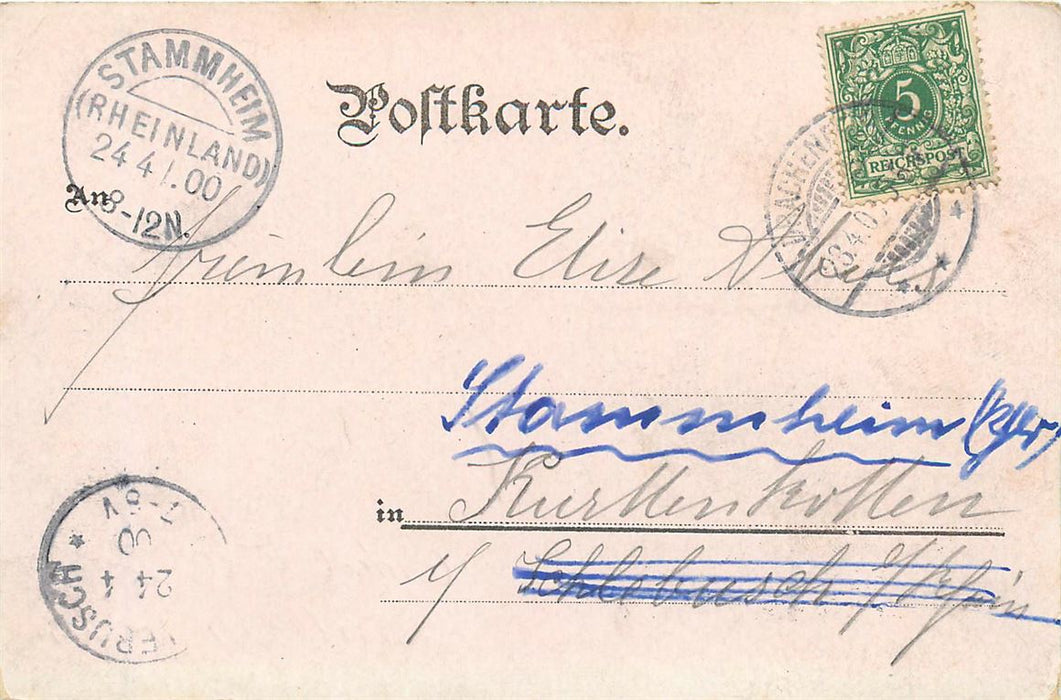 STAMMHEIM
(RHEINLAND)
24 4 1.00
8-12N.
Postkarte.
5
PFENNIG
REICHSPOST
23.4.0
An
Fräulein Elise
Stammheim
in Kurttenkotten
Schlebusch a/Rhein
7-8V
00
24 4
BUSCH